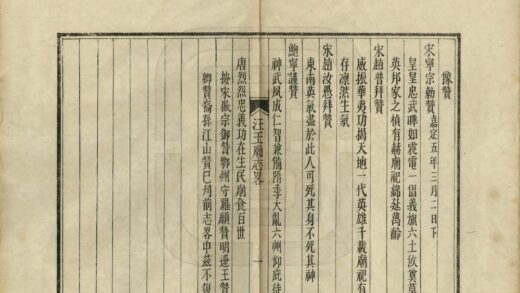 像贊
宋寧宗勅贊嘉定五年三月二日下
皇皇忠武曄如震電一倡義旗六土攸奠草
英邦家之楨有赫廟祀綿延萬齡
宋趙普拜贊
威振華夷功揭天地一代英雄千載廟祀有
存凛然生氣
宋趙汝愚拜贊
東南英氣盡於此人可死其身不死其神
鮑寧謹贊
神武夙成仁智兼備隋季大亂六州仰庇待
汪王廟志畧 一
唐烈烈忠義功在生民廟食百世
按宋徽宗御贊鄂州守羅願贊明遼王贊
卿贊裔孫江山贊已列前志畧中茲不復